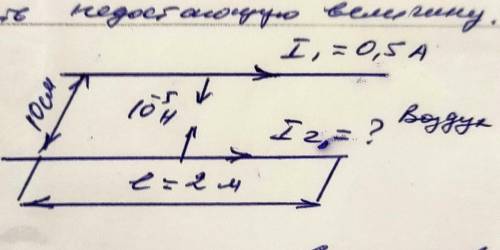 ть недостающую величину.
I₁ = 0,5 А
10 см
10⁻⁵ Н
I₂ = ? Воздух
l = 2 м